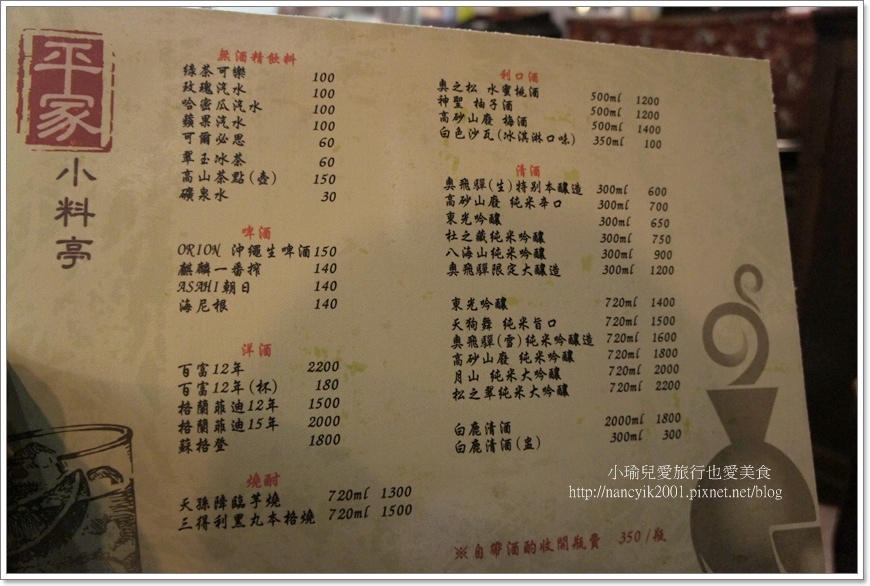 平家
小料亭
無酒精飲料
綠茶可樂 100
玫瑰汽水 100
哈密瓜汽水 100
蘋果汽水 100
可爾必思 60
翠玉冰茶 60
高山茶點(壺) 150
礦泉水 30
啤酒
ORION 沖繩生啤酒 150
麒麟一番搾 140
ASAHI朝日 140
海尼根 140
洋酒
百富12年 2200
百富12年(杯) 180
格蘭菲迪12年 1500
格蘭菲迪15年 2000
蘇格登 1800
燒酎
天孫降臨芋燒 720ml 1300
三得利黑丸本格燒 720ml 1500
利口酒
奧之松 水蜜桃酒 500ml 1200
神聖 柚子酒 500ml 1200
高砂山廢 梅酒 500ml 1400
白色沙瓦(冰淇淋口味) 350ml 100
清酒
奧飛驒(生)特別本釀造 300ml 600
高砂山廢 純米辛口 300ml 700
東光吟釀 300ml 650
杜之藏純米吟釀 300ml 750
八海山純米吟釀 300ml 900
奧飛驒限定大釀造 300ml 1200
東光吟釀 720ml 1400
天狗舞 純米旨口 720ml 1500
奧飛驒(雪)純米吟釀造 720ml 1600
高砂山廢 純米吟釀 720ml 1800
月山 純米大吟釀 720ml 2000
松之翠純米大吟釀 720ml 2200
白鹿清酒 2000ml 1800
白鹿清酒(盅) 300ml 300
※自帶酒酌收開瓶費 350/瓶
小瑜兒愛旅行也愛美食
http://nancyik2001.pixnet.net/blog